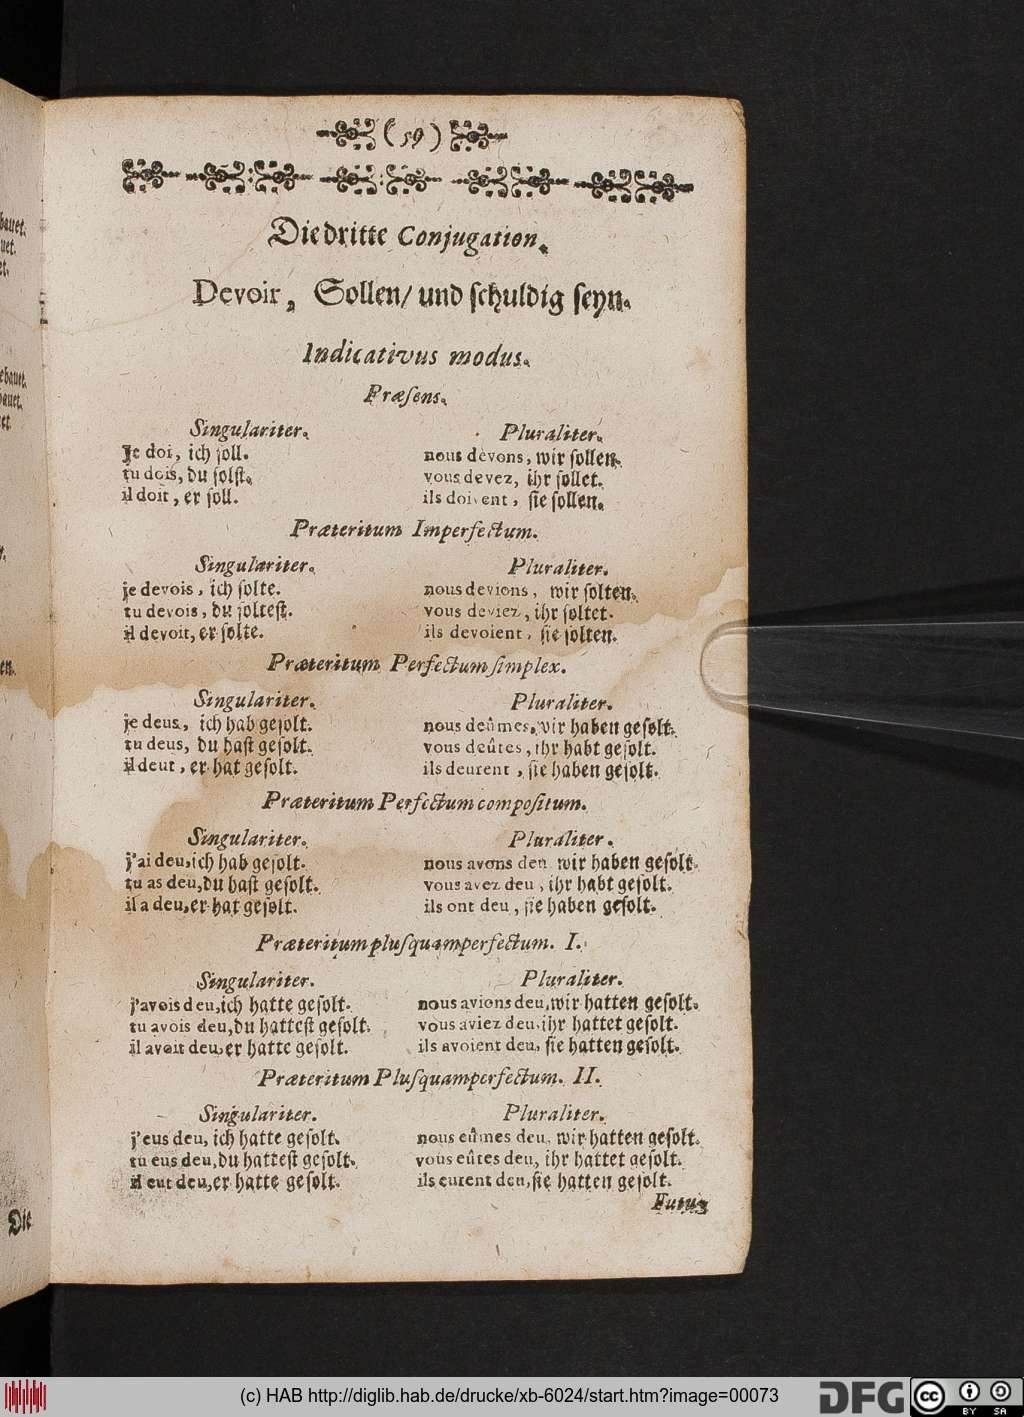 (59)
Die dritte Conjugation.
Devoir, Sollen/ und schuldig seyn.
Indicativus modus.
Præsens.
Singulariter.
Je doi, ich soll.
tu dois, du solst.
il doit, er soll.
Pluraliter.
nous devons, wir sollen.
vous devez, ihr sollet.
ils doivent, sie sollen.
Præteritum Imperfectum.
Singulariter.
je devois, ich solte.
tu devois, du soltest.
il devoit, er solte.
Pluraliter.
nous devions, wir solten.
vous deviez, ihr soltet.
ils devoient, sie solten.
Præteritum Perfectum simplex.
Singulariter.
je deus, ich hab gesolt.
tu deus, du hast gesolt.
il deut, er hat gesolt.
Pluraliter.
nous deûmes, wir haben gesolt.
vous deûtes, ihr habt gesolt.
ils deurent, sie haben gesolt.
Præteritum Perfectum compositum.
Singulariter.
j'ai deu, ich hab gesolt.
tu as deu, du hast gesolt.
il a deu, er hat gesolt.
Pluraliter.
nous avons deu wir haben gesolt.
vous avez deu, ihr habt gesolt.
ils ont deu, sie haben gesolt.
Præteritum plusquamperfectum. I.
Singulariter.
j'avois deu, ich hatte gesolt.
tu avois deu, du hattest gesolt.
il avoit deu, er hatte gesolt.
Pluraliter.
nous avions deu, wir hatten gesolt.
vous aviez deu, ihr hattet gesolt.
ils avoient deu, sie hatten gesolt.
Præteritum Plusquamperfectum. II.
Singulariter.
j'eus deu, ich hatte gesolt.
tu eus deu, du hattest gesolt.
il eut deu, er hatte gesolt.
Pluraliter.
nous eûmes deu, wir hatten gesolt.
vous eûtes deu, ihr hattet gesolt.
ils eurent deu, sie hatten gesolt.
Futu-
Die
(c) HAB http://diglib.hab.de/drucke/xb-6024/start.htm?image=00073
DFG
cc BY SA